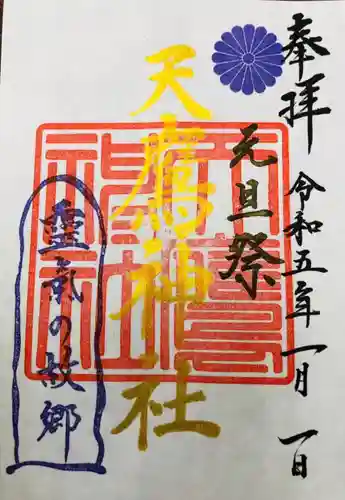 奉拝
令和五年一月一日
元旦祭
天鷹神社
霊氣の故郷